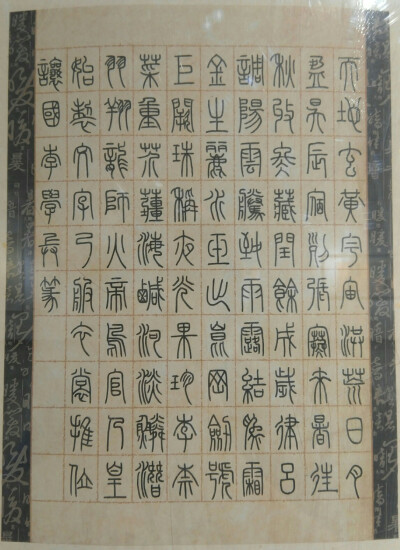 天地玄黃宇宙洪荒日月
盈昃辰宿列張寒來暑往
秋收冬藏閏餘成歲律呂
調陽雲騰致雨露結為霜
金生麗水玉出崑岡劍號
巨闕珠稱夜光果珍李柰
菜重芥薑海鹹河淡鱗潛
羽翔龍師火帝鳥官人皇
始製文字乃服衣裳推位
讓國李學長篆